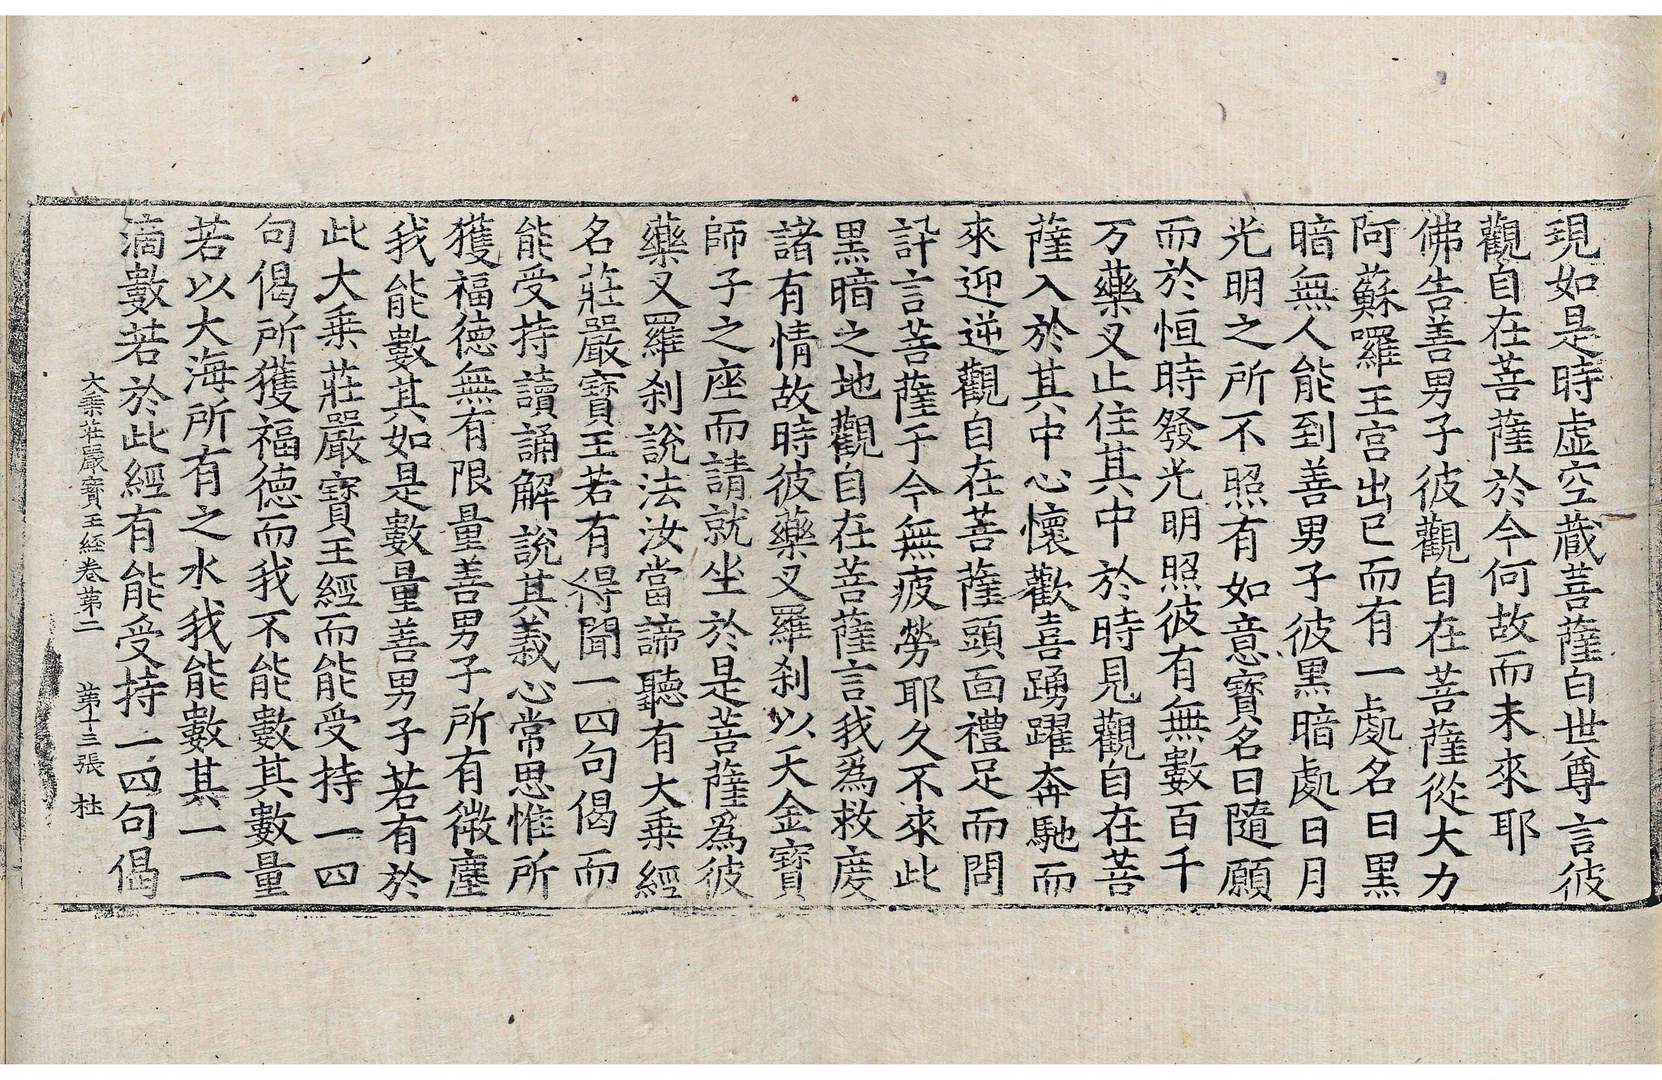 現如是時虛空藏菩薩白世尊言彼
觀自在菩薩於今何故而未來耶
佛告善男子彼觀自在菩薩從大力
阿蘇囉王宮出已而有一處名曰黑
暗無人能到善男子彼黑暗處日月
光明之所不照有如意寶名曰隨願
而於恒時發光明照彼有無數百千
万藥叉止住其中於時見觀自在菩
薩入於其中心懷歡喜踴躍奔馳而
來迎逆觀自在菩薩頭面禮足而問
訊言菩薩于今無疲勞耶久不來此
黑暗之地觀自在菩薩言我為救度
諸有情故時彼藥叉羅刹以天金寶
師子之座而請就坐於是菩薩為彼
藥叉羅刹說法汝當諦聽有大乘經
名莊嚴寶王若有得聞一四句偈而
能受持讀誦解說其義心常思惟所
獲福德無有限量善男子所有微塵
我能數其如是數量善男子若有於
此大乘莊嚴寶王經而能受持一四
句偈所獲福德而我不能數其數量
若以大海所有之水我能數其一一
滴數若於此經有能受持一四句偈
大乘莊嚴寶王經卷第二 第十三張 杜